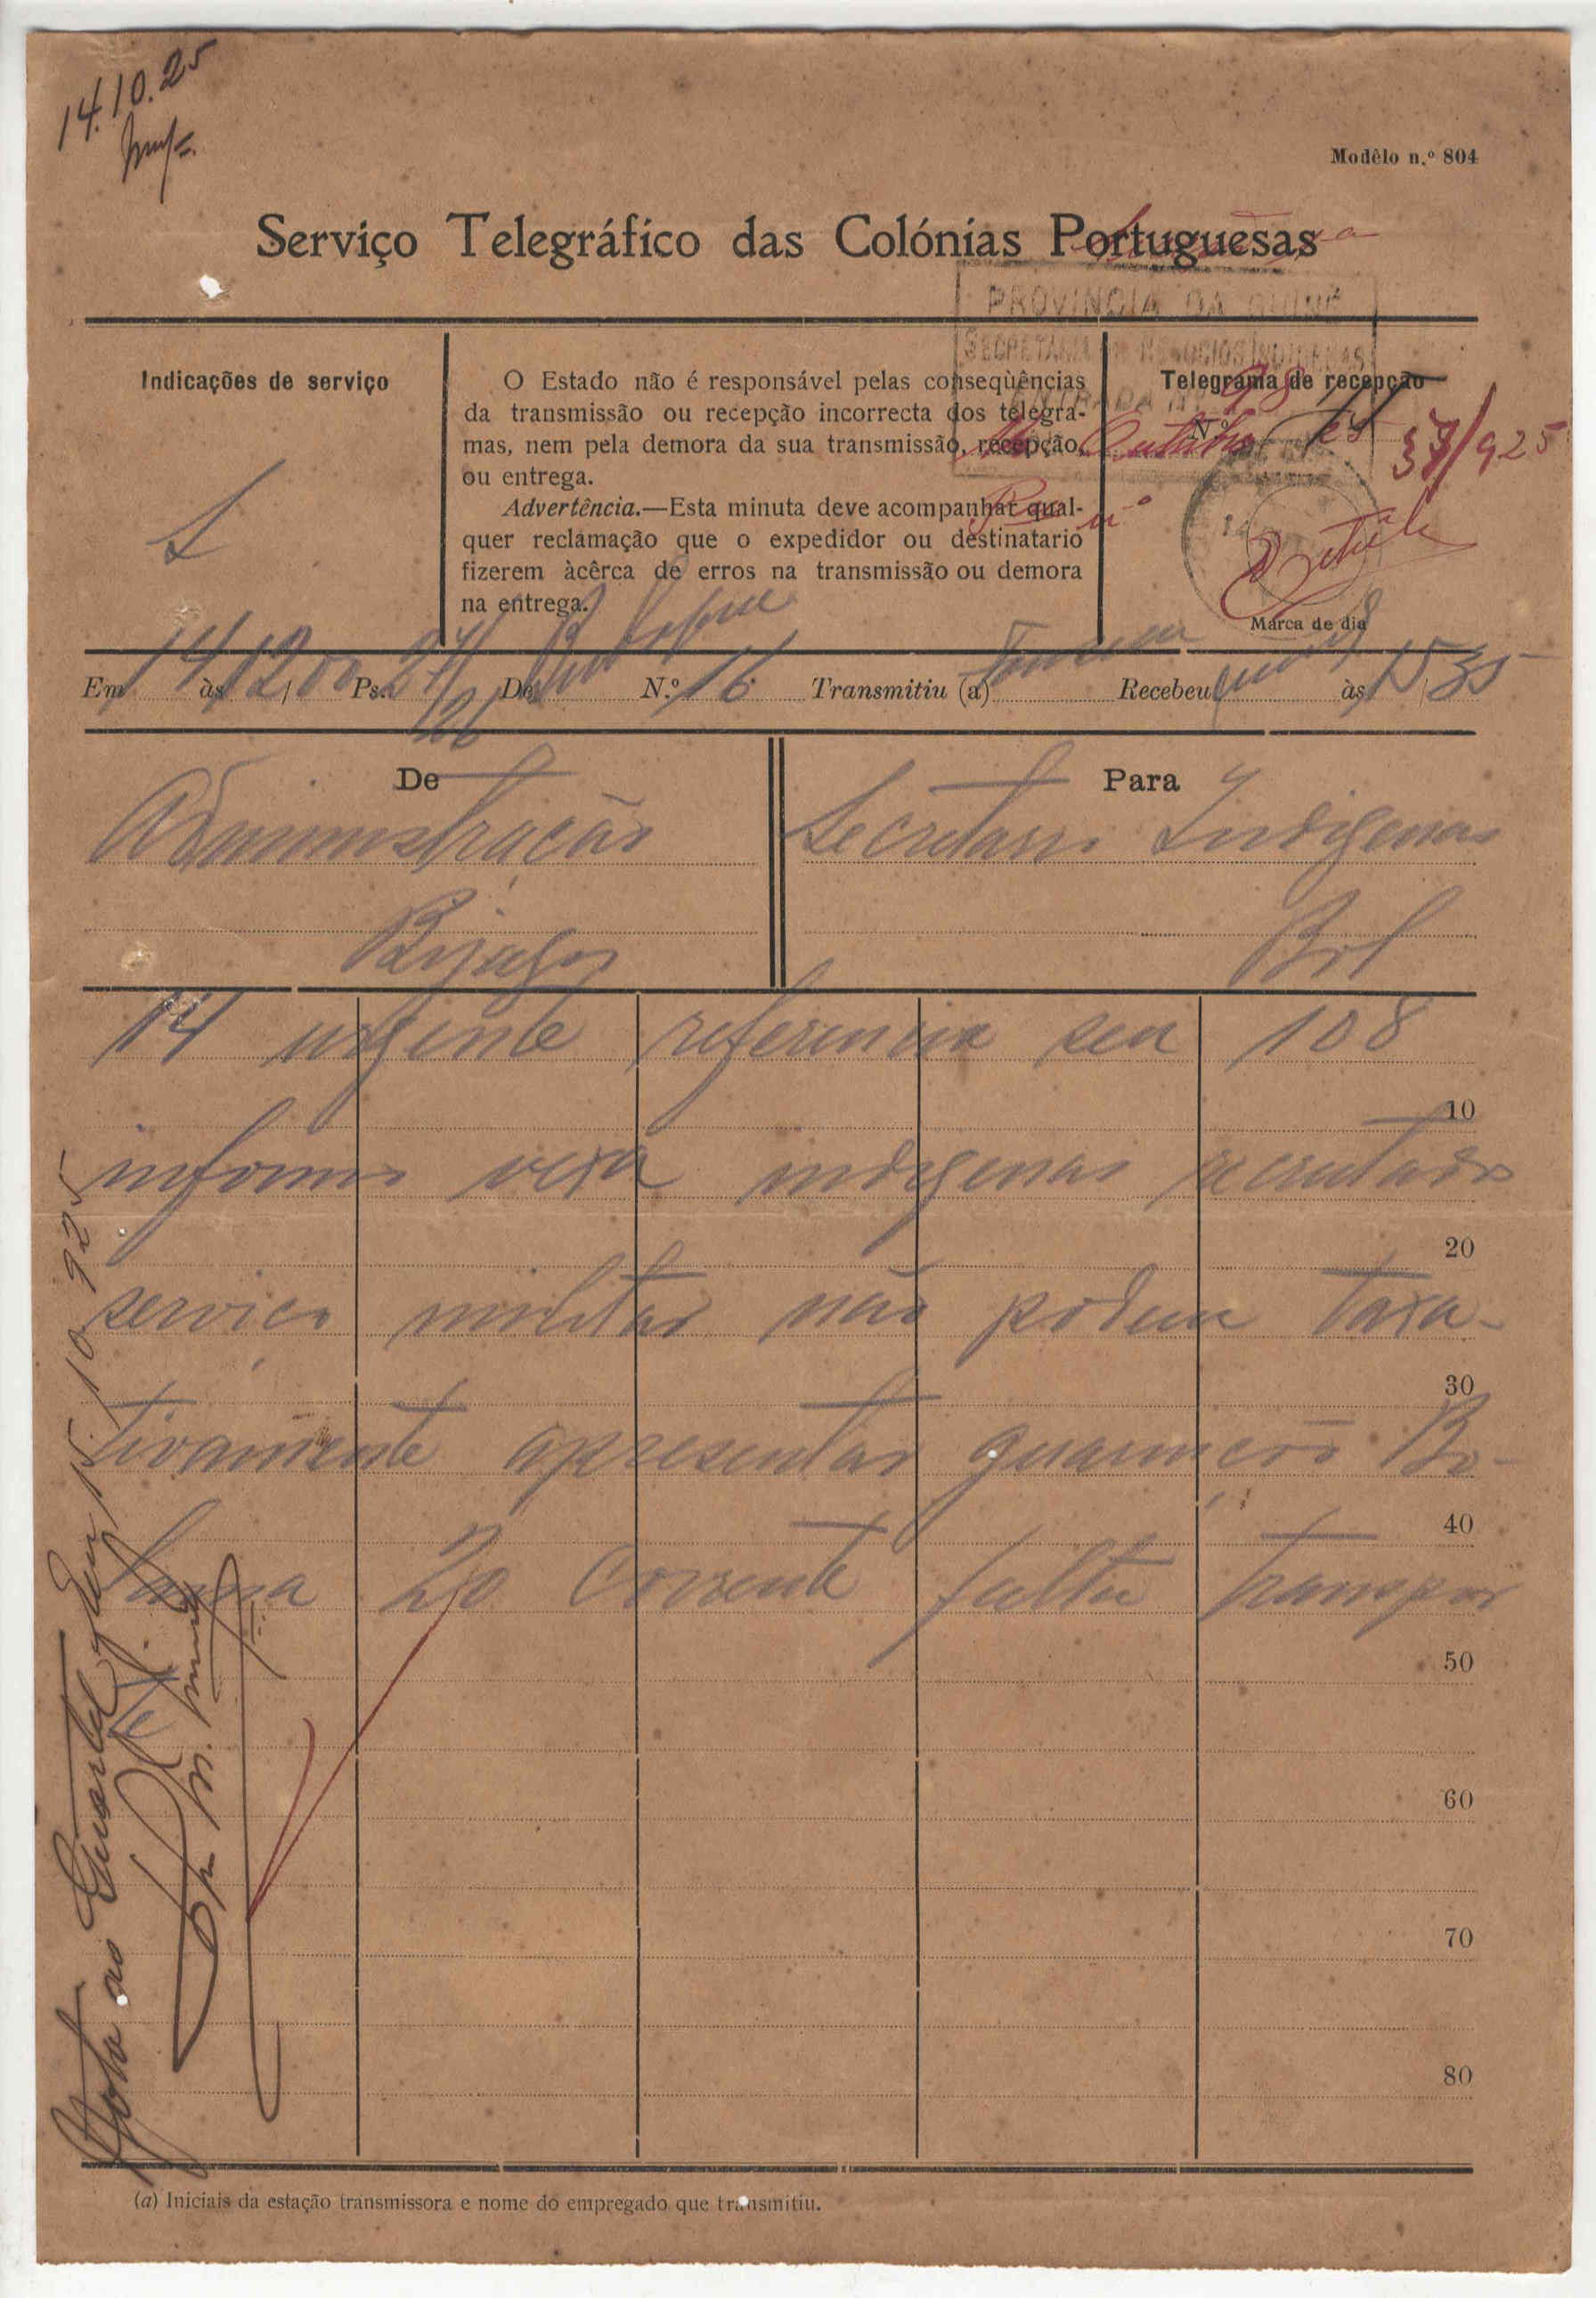 14.10.25
Modêlo n.º 804
Serviço Telegráfico das Colónias Portuguesas
PROVINCIA DA GUINÉ
SECRETARIA DE NEGOCIOS INDIGENAS
ENTRADA Nº 98
Outubro 25
37/925
Indicações de serviço
S
O Estado não é responsável pelas conseqüências
da transmissão ou recepção incorrecta dos telegra-
mas, nem pela demora da sua transmissão, recepção,
ou entrega.
Advertência.—Esta minuta deve acompanhar qual-
quer reclamação que o expedidor ou destinatario
fizerem àcêrca de erros na transmissão ou demora
na entrega.
Telegrama de recepção
N.º
Marca de dia
Em 14 às 12/00 Ps. 27/26 De N.º 16 Transmitiu (a) Recebeu às 15/35
De
Administração
Bijagos
Para
Secretario Indigenas
Bol
14 urgente referencia seu 108
10
informo vexa indigenas recrutados
20
serviço militar não podem taxa-
30
tivamente apresentar guarnição Bo-
40
lama 20 corrente falta transpor
50
60
70
80
Nota ao Quartel Em 15-10-925
(a) Iniciais da estação transmissora e nome do empregado que transmitiu.